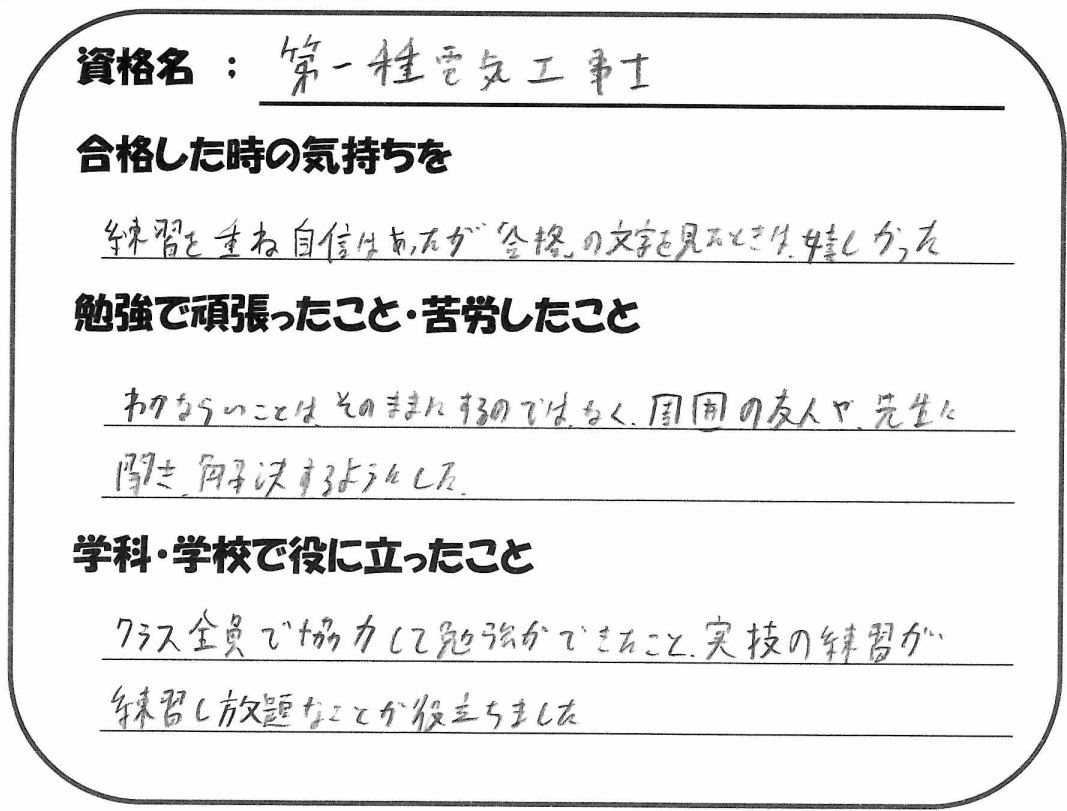 資格名 : 第一種電気工事士
合格した時の気持ちを
練習を重ね自信はあったが「合格」の文字を見たときは、嬉しかった
勉強で頑張ったこと・苦労したこと
わからないことは、そのままにするのではなく、周囲の友人や、先生に
聞き、解決するようにした。
学科・学校で役に立ったこと
クラス全員で協力して勉強ができたこと、実技の練習が
練習し放題なことが役立ちました